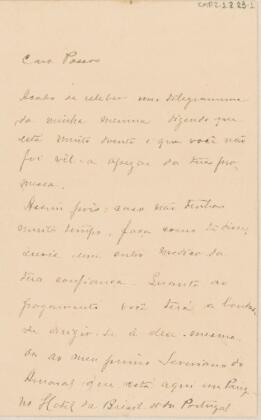 Caro Passos
Acabo de receber um telegramma
da minha menina dizendo que
está muito doente e que você não
foi vel-a apezar da tua pro
messa.
Assim pois, caso não tenhas
muito tempo, faça como te disse,
envie um outro medico da
tua confiança. Quanto ao
pagamento você terá a bondade
de dirigir-se á
ao meu primo Severiano do
Amaral que está aqui em Pariz
no Hotel du Brésil et du Portugal